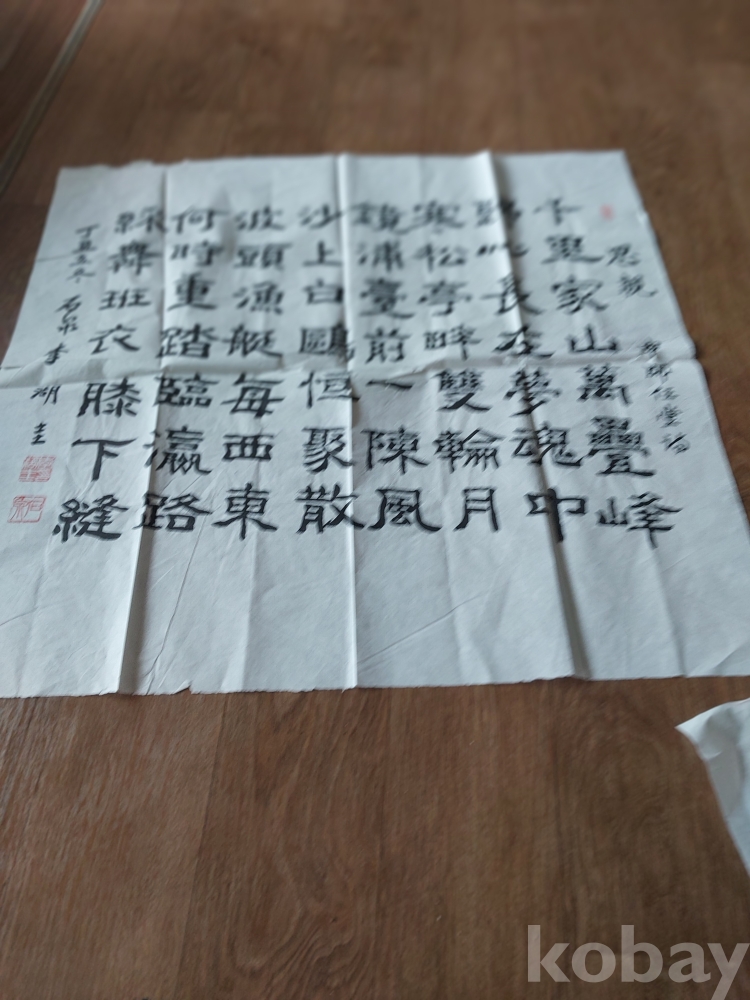 思親 申師任堂詩
千里家山萬疊峰
歸心長在夢魂中
寒松亭畔雙輪月
鏡浦臺前一陳風
沙上白鷗恒聚散
波頭漁艇每西東
何時重踏臨瀛路
綵舞班衣膝下縫
丁丑 石泉 李湖圭
kobay